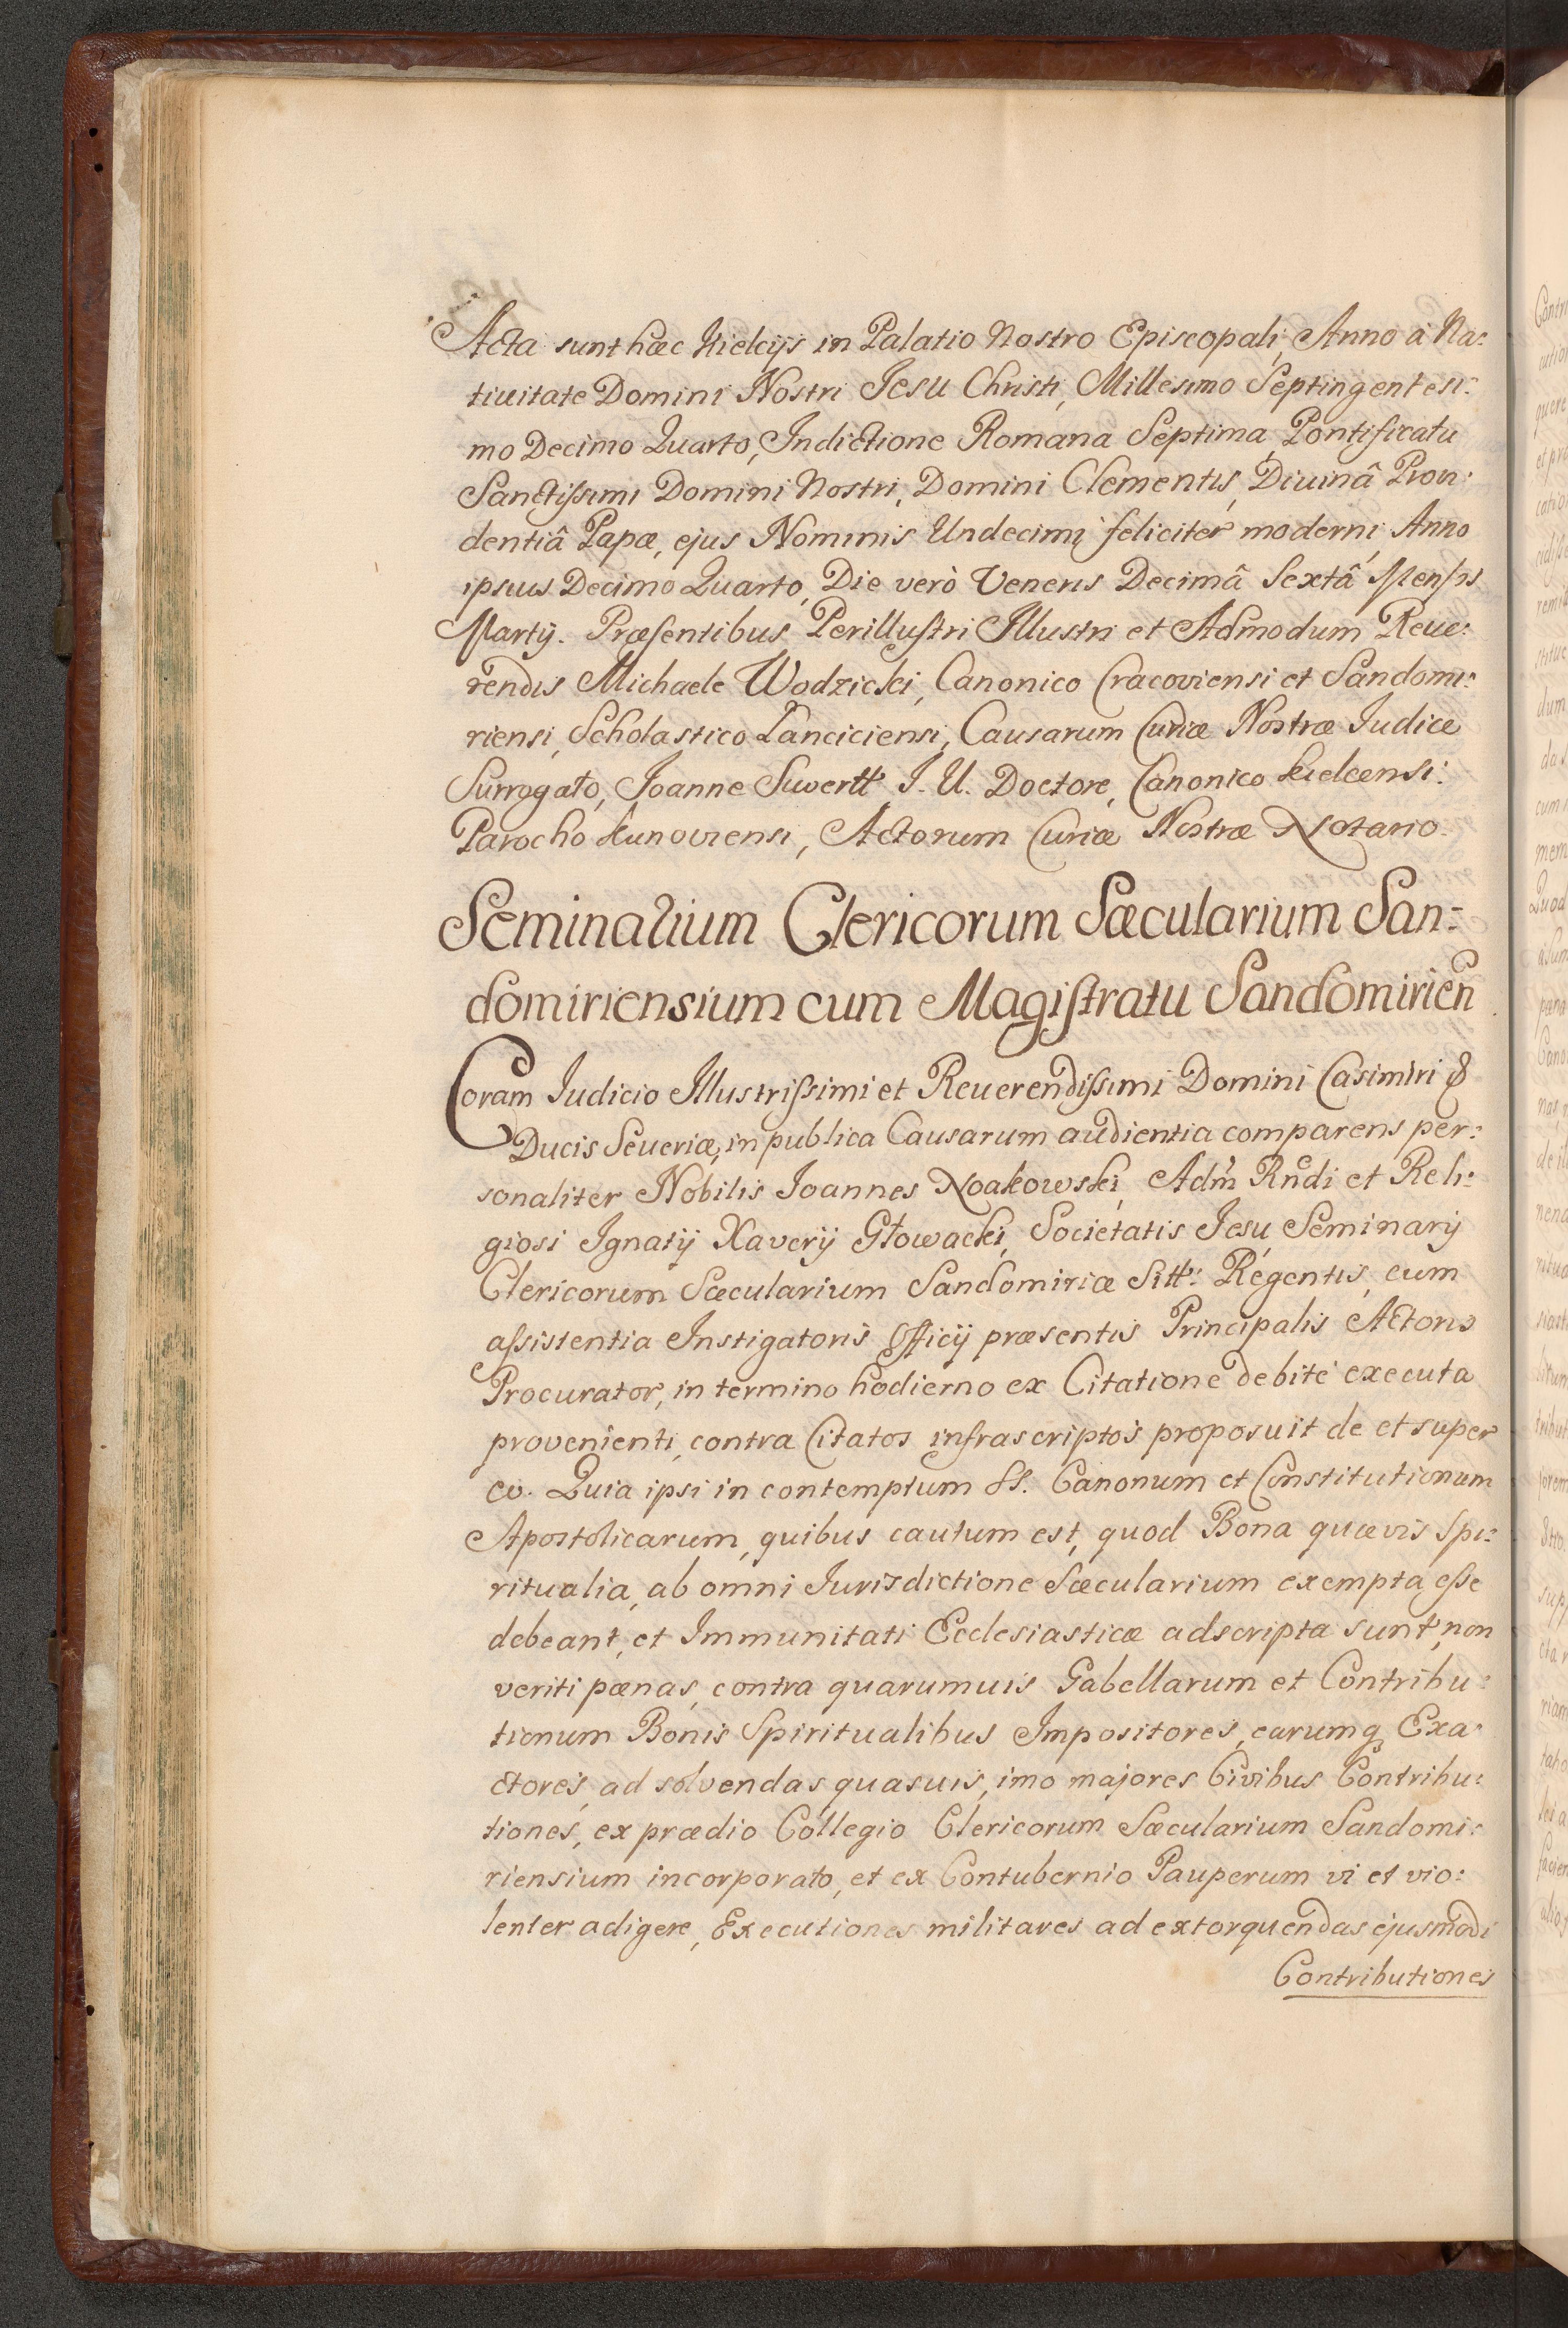 Acta sunt hæc Kielcijs in Palatio Nostro Episcopali, Anno à Na:
tiuitate Domini Nostri Jesu Christi, Millesimo Septingentesi:
mo Decimo Quarto, Indictione Romana Septima, Pontificatu
Sanctissimi Domini Nostri, Domini Clementis, Diuinâ Proui:
dentiâ Papæ, ejus Nominis Undecimi feliciter moderni, Anno
ipsius Decimo Quarto, Die verò Veneris Decimâ Sextâ Mensis
Martij. Præsentibus Perillustri Illustri et Admodum Reue:
rendis Michaele Wodzicki, Canonico Cracoviensi et Sandomi:
riensi, Scholastico Lanciciensi, Causarum Curiæ Nostræ Iudice
Surrogato, Joanne Suwertt J. U. Doctore, Canonico kielcensi:
Parocho kunoviensi, Actorum Curiæ Nostræ Notario.
Seminarium Clericorum Sæcularium San=
domiriensium cum Magistratu Sandomirien
Coram Iudicio Illustrissimi et Reuerendissimi Domini Casimiri &
Ducis Seueriæ, in publica Causarum audientia comparens per:
sonaliter Nobilis Ioannes Noakowski, Adm Rndi et Reli:
giosi Ignatij Xaverij Głowacki, Societatis Jesu, Seminarij
Clericorum Sæcularium Sandomiriæ Sitt: Regentis, cum
assistentia Instigatoris Officij præsentis Principalis Actoris
Procurator, in termino hodierno ex Citatione debitè executa
provenienti, contra Citatos infrascriptos proposuit de et super
eo. Quia ipsi in contemptum SS. Canonum et Constitutionum
Apostolicarum, quibus cautum est, quod Bona quævis Spi:
ritualia, ab omni Iurisdictione Sæcularium exempta esse
debeant, et Immunitati Ecclesiasticæ adscripta sunt, non
veriti pænas, contra quarumuis Gabellarum et Contribu:
tionum Bonis Spiritualibus Impositores, earumq Exa:
ctores, ad solvendas quasuis, imo majores Civibus Contribu:
tiones, ex prædio Collegio Clericorum Sæcularium Sandomi:
riensium incorporato, et ex Contubernio Pauperum vi et vio:
lenter adigere, Executiones militares ad extorquendas ejusmodi
Contributiones